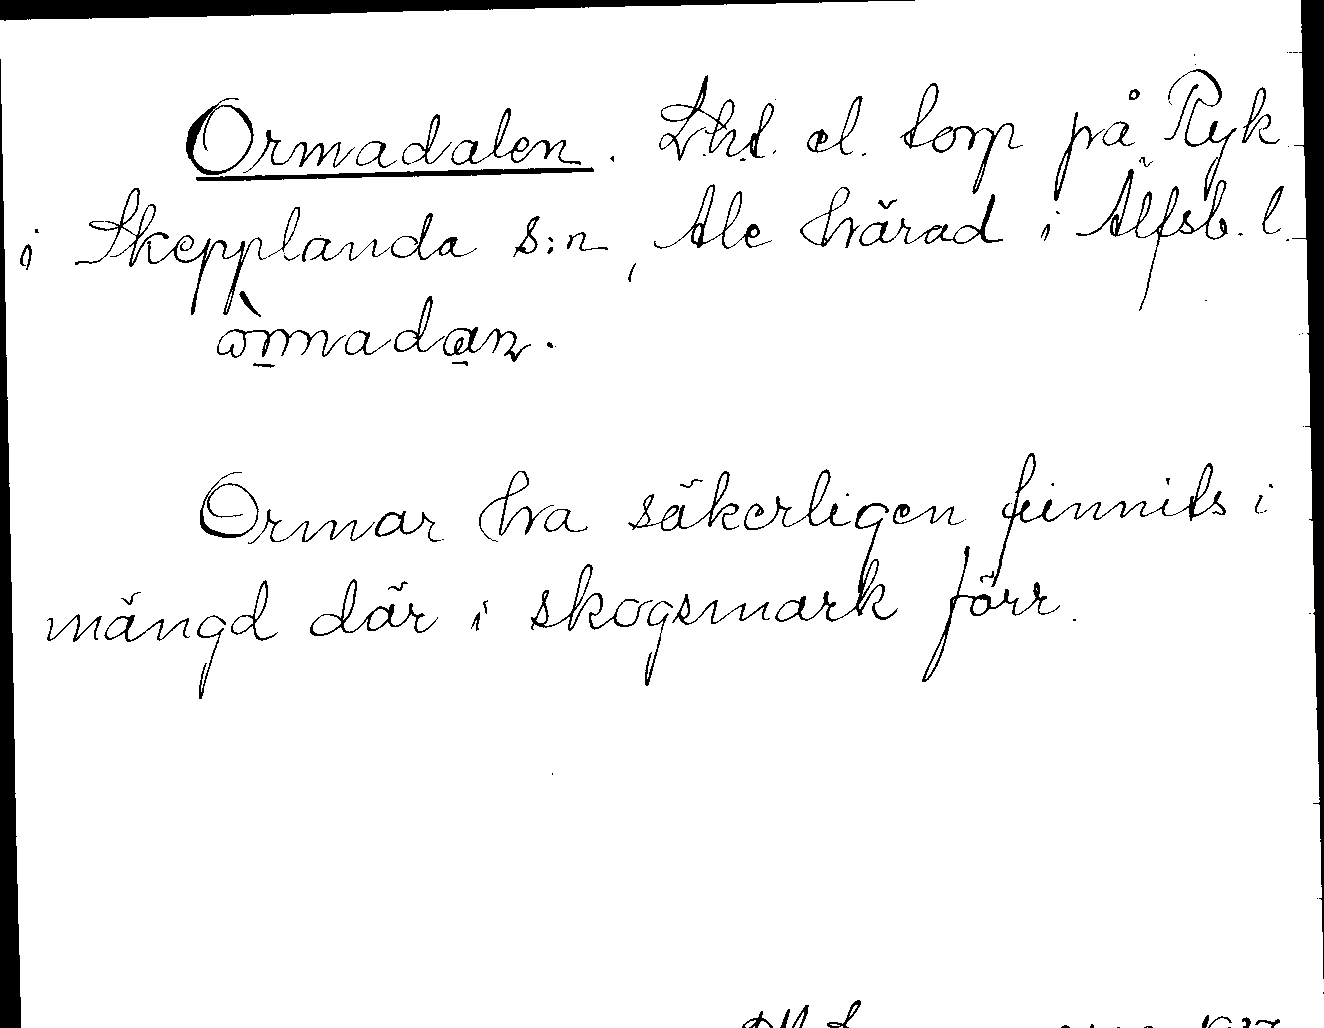 Ormadalen. Lht. el. torp på Ryk
i Skepplanda s:n, Ale härad i Älfsb. l.
òrmadan.
Ormar ha säkerligen funnits i
mängd där i skogsmark förr.
1937